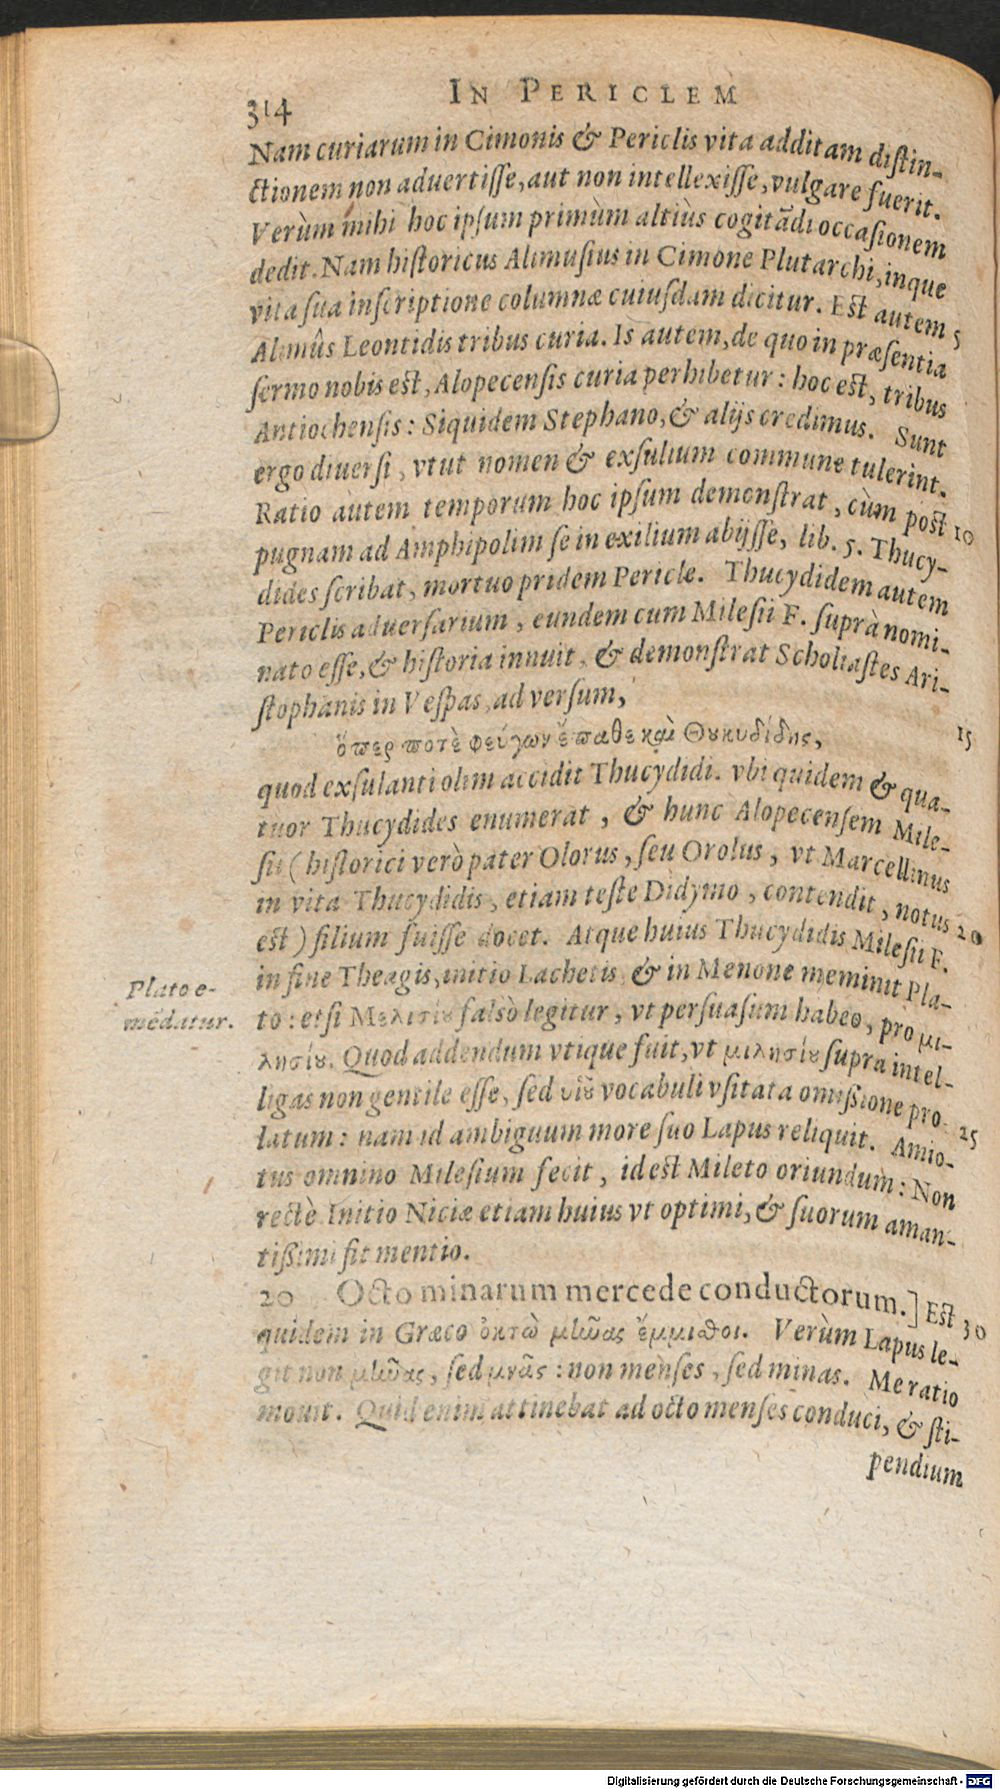 314 IN PERICLEM
Nam curiarum in Cimonis & Periclis vita additam distin-
ctionem non aduertisse, aut non intellexisse, vulgare fuerit.
Verùm mihi hoc ipsum primùm altiùs cogitãdi occasionem
dedit. Nam historicus Alimusius in Cimone Plutarchi, inque
vita sua inscriptione columnæ cuiusdam dicitur. Est autem 5
Alimûs Leontidis tribus curia. Is autem, de quo in præsentia
sermo nobis est, Alopecensis curia perhibetur: hoc est, tribus
Antiochensis: Siquidem Stephano, & alijs credimus. Sunt
ergo diuersi, vtut nomen & exsulium commune tulerint.
Ratio autem temporum hoc ipsum demonstrat, cùm post 10
pugnam ad Amphipolim se in exilium abijsse, lib. 5. Thucy-
dides scribat, mortuo pridem Pericle. Thucydidem autem
Periclis aduersarium, eundem cum Milesii F. suprà nomi-
nato esse, & historia innuit, & demonstrat Scholiastes Ari-
stophanis in Vespas, ad versum,
ὅπερ ποτὲ φεύγων ἔπαθε καὶ Θουκυδίδης, 15
quod exsulanti olim accidit Thucydidi. vbi quidem & qua-
tuor Thucydides enumerat, & hunc Alopecensem Mile-
sii (historici verò pater Olorus, seu Orolus, vt Marcellinus
in vita Thucydidis, etiam teste Didymo, contendit, notus 20
est) filium fuisse docet. Atque huius Thucydidis Milesii F.
in fine Theagis, initio Lachetis, & in Menone meminit Pla-
Plato e-
mẽdatur.
to: etsi Μελισίου falsò legitur, vt persuasum habeo, pro μι-
λησίου. Quod addendum vtique fuit, vt μιλησίου supra intel-
ligas non gentile esse, sed υἱοῦ vocabuli vsitata omissione pro- 25
latum: nam id ambiguum more suo Lapus reliquit. Amio-
tus omnino Milesium fecit, id est Mileto oriundum: Non
rectè. Initio Niciæ etiam huius vt optimi, & suorum aman-
tissimi fit mentio.
20 Octo minarum mercede conductorum.] Est 30
quidem in Græco ὀκτὼ μῆνας ἔμμισθοι. Verùm Lapus le-
git non μῆνας, sed μνᾶς: non menses, sed minas. Me ratio
mouit. Quid enim attinebat ad octo menses conduci, & sti-
pendium
Digitalisierung gefördert durch die Deutsche Forschungsgemeinschaft - DFG